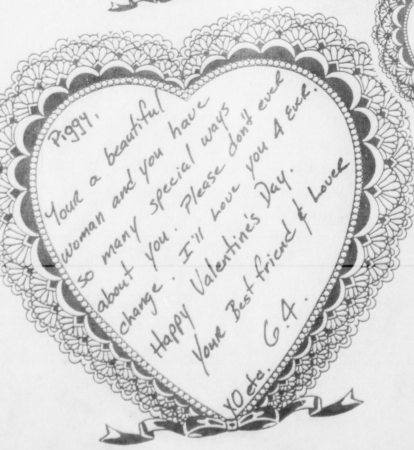 Piggy,
Your a beautiful
woman and you have
so many special ways
about you. Please don't ever
change. I'll Love you 4 Ever.
Happy Valentine's Day.
Your Best friend & Lover
G.A.
XO etc.